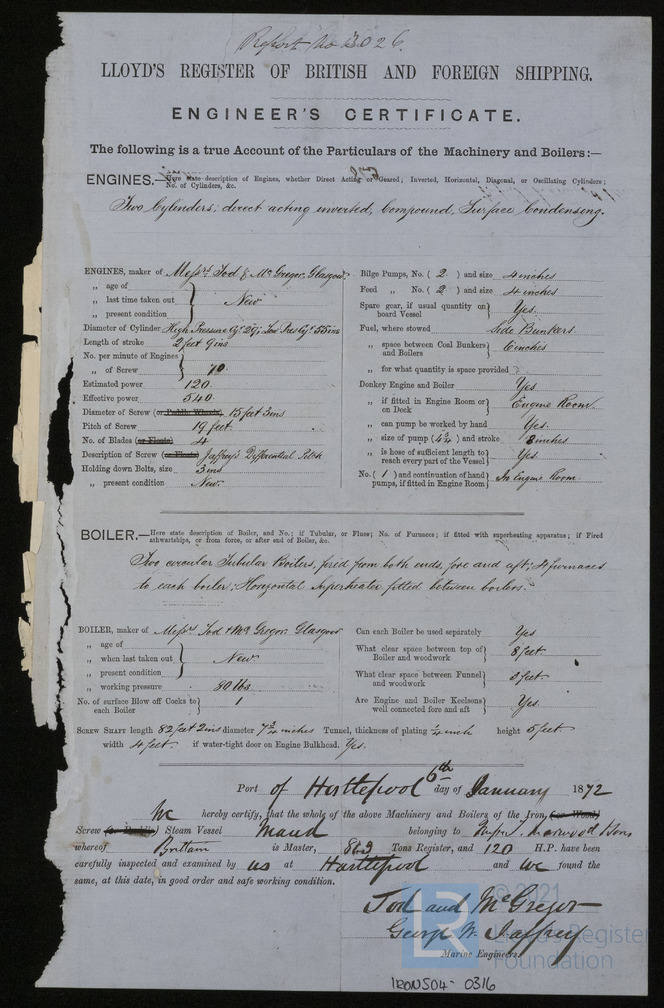 Report No 3026.
LLOYD'S REGISTER OF BRITISH AND FOREIGN SHIPPING.
ENGINEER'S CERTIFICATE.
The following is a true Account of the Particulars of the Machinery and Boilers:—
ENGINES.—Here state description of Engines, whether Direct Acting or Geared; Inverted, Horizontal, Diagonal, or Oscillating Cylinders;
No. of Cylinders, &c.
Two Cylinders; direct acting inverted, Compound, Surface Condensong.
ENGINES, maker of Messrs Tod & McGregor, Glasgow
„ age of
„ last time taken out } New
„ present condition
Diameter of Cylinder High Pressure Cyr 29; Low Pres Cyr 55 ins
Length of stroke 2 feet 9 ins
No. per minute of Engines
„ of Screw } 70.
Estimated power 120.
Effective power 540.
Diameter of Screw (or Paddle Wheels) 15 feet 3 ins
Pitch of Screw 19 feet
No. of Blades (or Floats) 4
Description of Screw (or Floats) Jaffrey's Differential Pitch
Holding down Bolts, size 3 ins
„ present condition New.
Bilge Pumps, No. ( 2 ) and size 4 inches
Feed „ No. ( 2 ) and size 4 inches
Spare gear, if usual quantity on board Vessel } Yes.
Fuel, where stowed Side Bunkers
„ space between Coal Bunkers and Boilers } 6 inches
„ for what quantity is space provided
Donkey Engine and Boiler Yes
„ if fitted in Engine Room or on Deck } Engine Room.
„ can pump be worked by hand Yes.
„ size of pump (4¾) and stroke 8 inches
„ is hose of sufficient length to reach every part of the Vessel } Yes.
No. ( 1 ) and continuation of hand pumps, if fitted in Engine Room } In Engine Room.
BOILER.—Here state description of Boiler, and No.; if Tubular, or Flues; No. of Furnaces; if fitted with superheating apparatus; if Fired
athwartships, or from force, or after end of Boiler, &c.
Two circular Tubular Boilers, fired from both ends, fore and aft; 4 furnaces
to each boiler; Horizontal superheater fitted between boilers.
BOILER, maker of Messrs Tod & McGregor Glasgow
„ age of
„ when last taken out } New.
„ present condition
„ working pressure 80 lbs
No. of surface Blow off Cocks to each Boiler } 1
Can each Boiler be used separately Yes
What clear space between top of Boiler and woodwork } 8 feet
What clear space between Funnel and woodwork } 3 feet
Are Engine and Boiler Keelsons well connected fore and aft } Yes.
SCREW SHAFT length 82 feet 2 ins diameter 7¾ inches Tunnel, thickness of plating ¼ inch height 5 feet
width 4 feet if water-tight door on Engine Bulkhead. Yes.
Port of Hartlepool 6th day of January 1872
We hereby certify, that the whole of the above Machinery and Boilers of the Iron, (or Wood)
Screw (or Paddle) Steam Vessel Maud belonging to
whereof Brittan is Master, 863 Tons Register, and 120 H.P. have been
carefully inspected and examined by us at Hartlepool and we found the
same, at this date, in good order and safe working condition.
Tod and McGregor
George W. Jaffrey
Marine Engineers.
© 2021
LR Lloyd's Register
Foundation
IRON504-0316